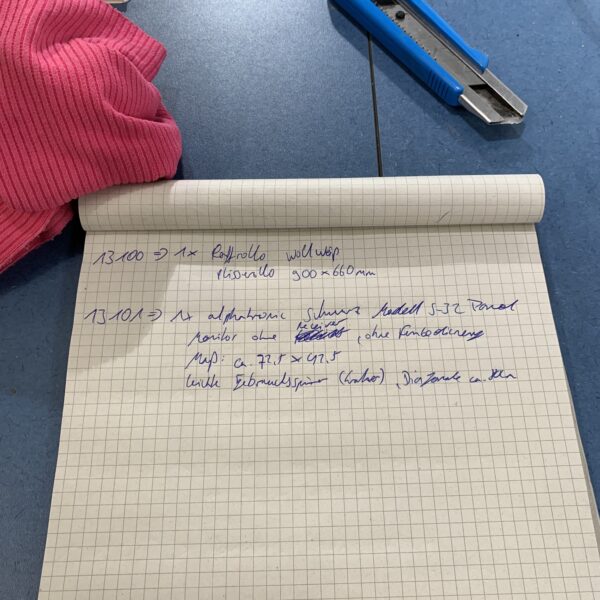 13100 => 1x Raffrollo
Plisserollo 900 x 660 mm
13101 => 1x alphatronic Schwarz Modell S-32
Monitor ohne receiver, ohne Fernbedienung
Maß: ca. 72,5 x 42,5
leichte Gebrauchsspuren (Kratzer), Diagonale ca.